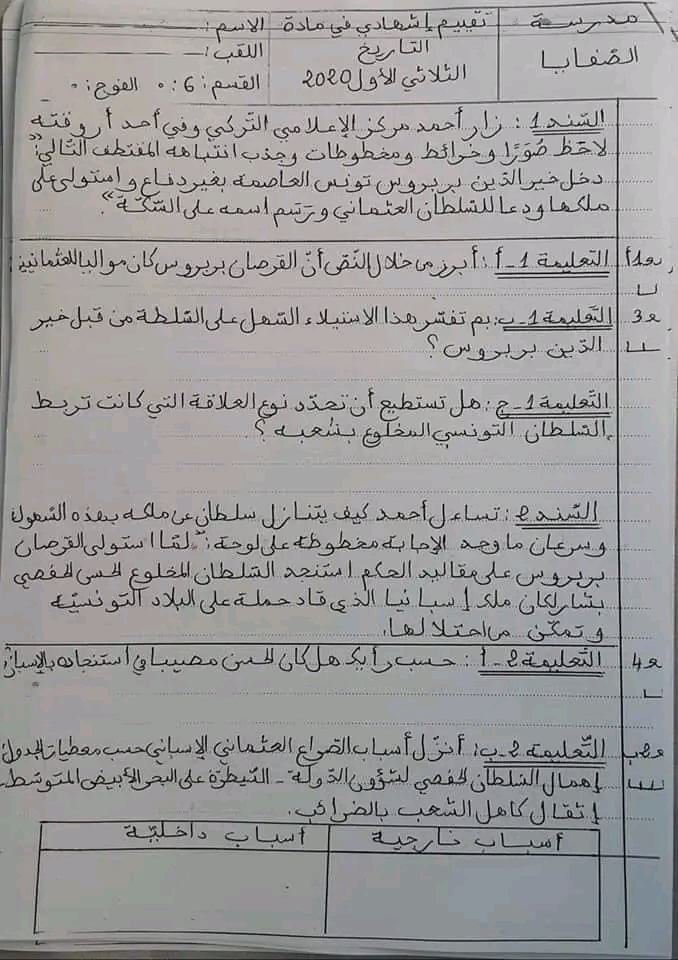 مدرسة
الصّفايا
تقييم إشهادي في مادة
التاريخ
الثلاثي الأول 2020
الاسم:
اللقب:
القسم: 6: الفوج:
السّند 1: زار أحمد مركز الإعلامي التّركي وفي أحد أروقته
لاحظ صُوَرًا وخرائط ومخطوطات وجذب انتباهه المقتطف التّالي: "
دخل خير الدّين بربروس تونس العاصمة بغير دفاع واستولى على
ملكها ودعا للسّلطان العثماني ورَسَم اسمه على السّكّة".
مع1أ
التعليمة 1-أ: أبرز من خلال النّصّ أنّ القرصان بربروس كان مواليا للعثمانيين
مع3
التّعليمة 1-ب: بم تفسّر هذا الاستيلاء السّهل على السّلطة من قبل خير
الدّين بربروس؟
التّعليمة 1-ج: هل تستطيع أن تحدّد نوع العلاقة التي كانت تربط
السّلطان التونسي المخلوع بشعبه؟
السّند 2: تساءل أحمد كيف يتنازل سلطان عن ملكه بهذه السّهولة
وسرعان ما وجد الإجابة مخطوطة على لوحة: "لمّا استولى القرصان
بربروس على مقاليد الحكم استنجد السّلطان المخلوع الحسن الحفصي
بشارلكان ملك إسبانيا الذي قاد حملة على البلاد التونسيّة
وتمكّن من احتلالها.
مع4
التّعليمة 2-أ: حسب رأيك هل كان الحسن مصيبا في استنجاده بالإسبان
مع2ب
التّعليمة 2-ب: أنزّل أسباب الصّراع العثماني الإسباني حسب معطيات الجدول:
إهمال السّلطان الحفصي لشؤون الدّولة - السّيطرة على البحر الأبيض المتوسّط -
إثقال كاهل الشّعب بالضّرائب.
أسباب خارجية
أسباب داخليّة